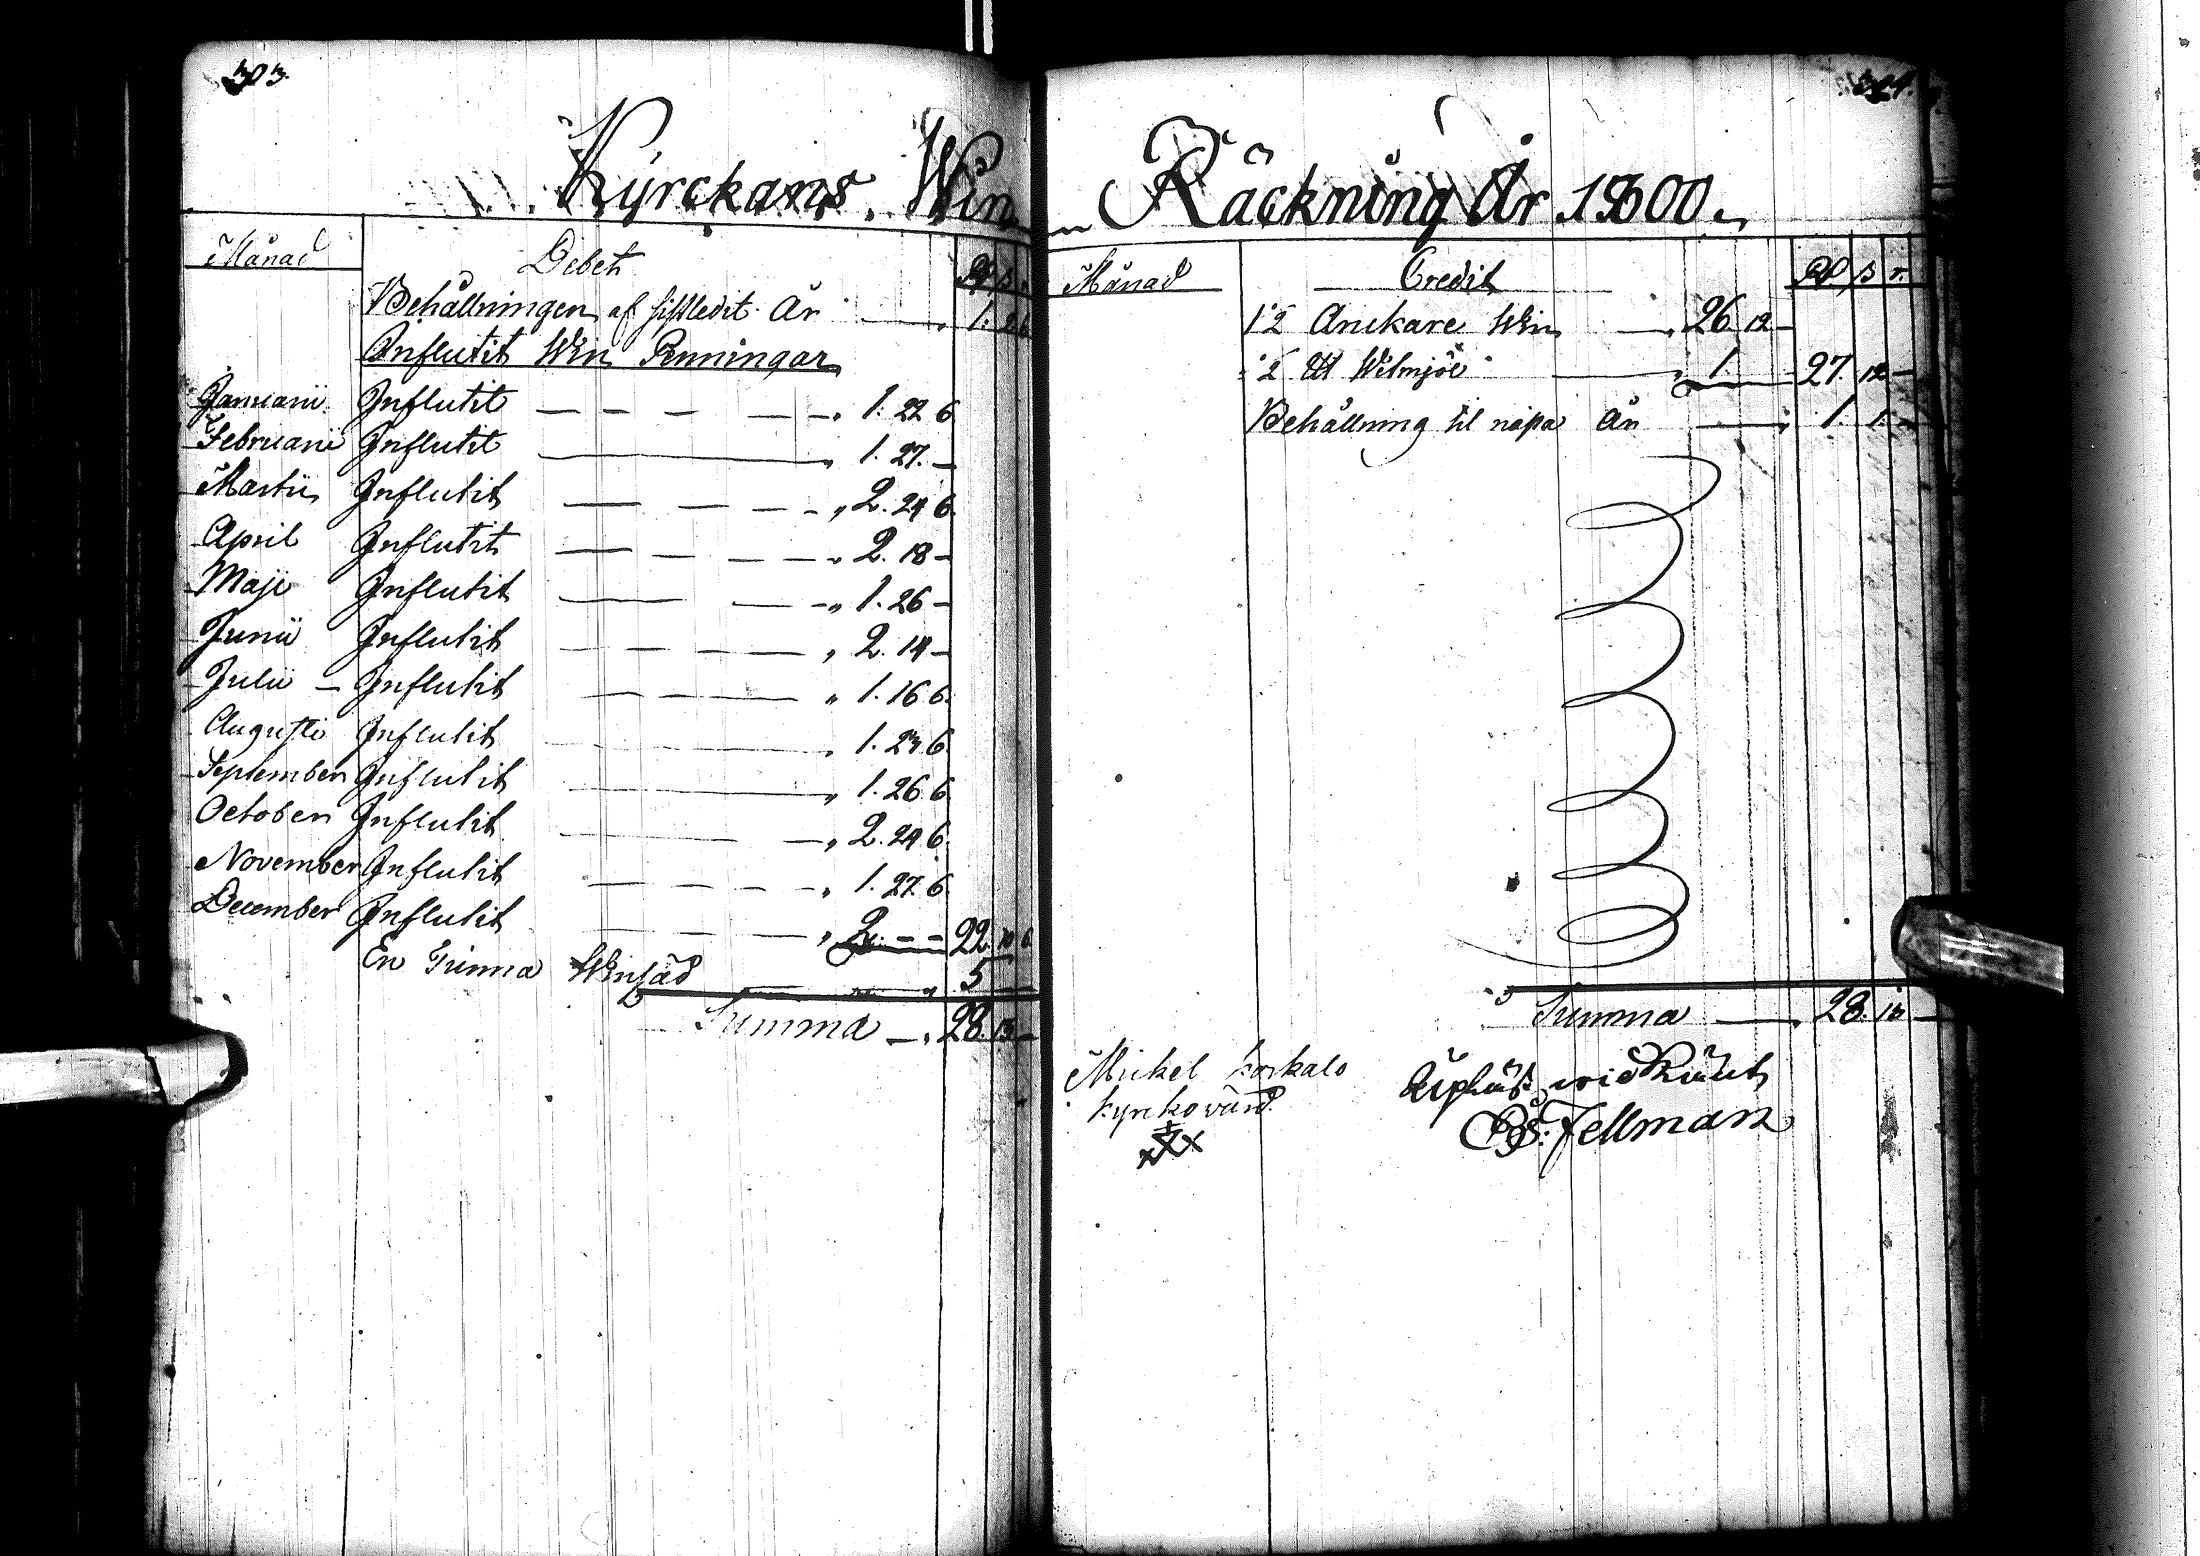 303.
Kyrckans Win
Månad Debet Rd ß r.
Behållningen af sistledit År 1. 2. 6
Influtit Win Penningar
Januarii Influtit 1. 22 6
Februarii Influtit 1. 27. –
Martii Influtit 2. 24 6.
April Influtit 2. 18 –
Maji Influtit 1. 26 –
Junii Influtit 2. 14 –
Julii – Influtit 1. 16 6.
Augusti Influtit 1. 23 6.
September Influtit 1. 26 6
October Influtit 2. 24 6.
November Influtit 1. 27. 6.
December Influtit 2. – – 22. 10 6
En Tunna Winsäd 5
Summa 28. 13 –
304.
Räckning År 1800.
Månad Credit Rd ß r.
12 Anckare Win 26. 12 –
2 Winmjöl 1. 27. 12 –
Behållning til näpa År 1. 1. –
Summa 28. 13 –
Mickel
kyrkovärd
E. Fellman